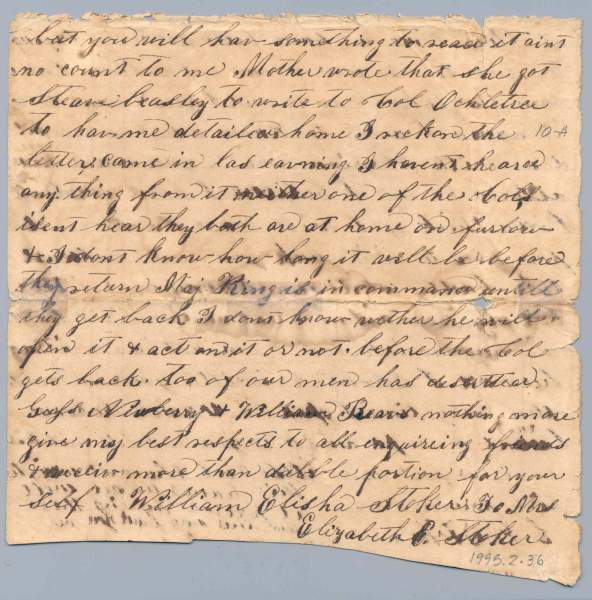 but you will hav something to read it aint
no count to me Mother wrote that she got
Steave beasley to write to Col Ochletree
to hav me detailed home I reckon the 10-A
letter came in las eavning I havent heard
any thing from it neither one of the Cols
isent hear they both are at home on furlow
& I dont know how long it will be before
they return Maj King is in command untill
they get back I dont know wether he will
open it & act on it or not before the Col
gets back too of our men has desirtead
Newberry & William nothing more
give my best respects to all enquireing friends
& receiv more than dubble portion for your
self William Elisha Stoker To Mrs
Elizabeth E. Stoker
1995.2.36